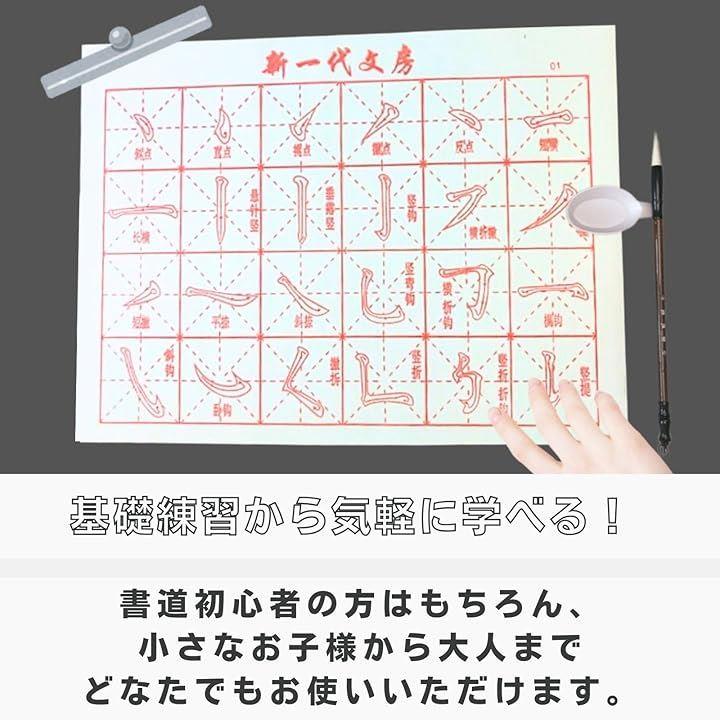 新一代文房
01
斜点 直点 提点 撇点 反点 短横
长横 悬针竖 垂露竖 竖钩 横折撇
短撇 平捺 斜捺 竖弯钩 横折钩 横钩
斜钩 卧钩 撇折 竖折 竖折折钩 竖提
基礎練習から気軽に学べる！
書道初心者の方はもちろん、
小さなお子様から大人まで
どなたでもお使いいただけます。